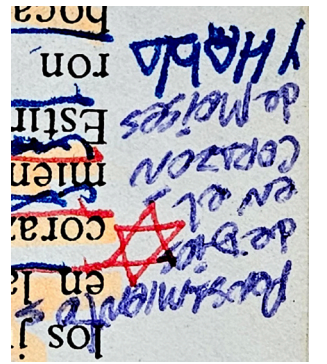 Pensamiento
de Dios
en el
CORAZON
de Moises
Y HAbla
los
en la
coraz
mien
Estim
ron
boca